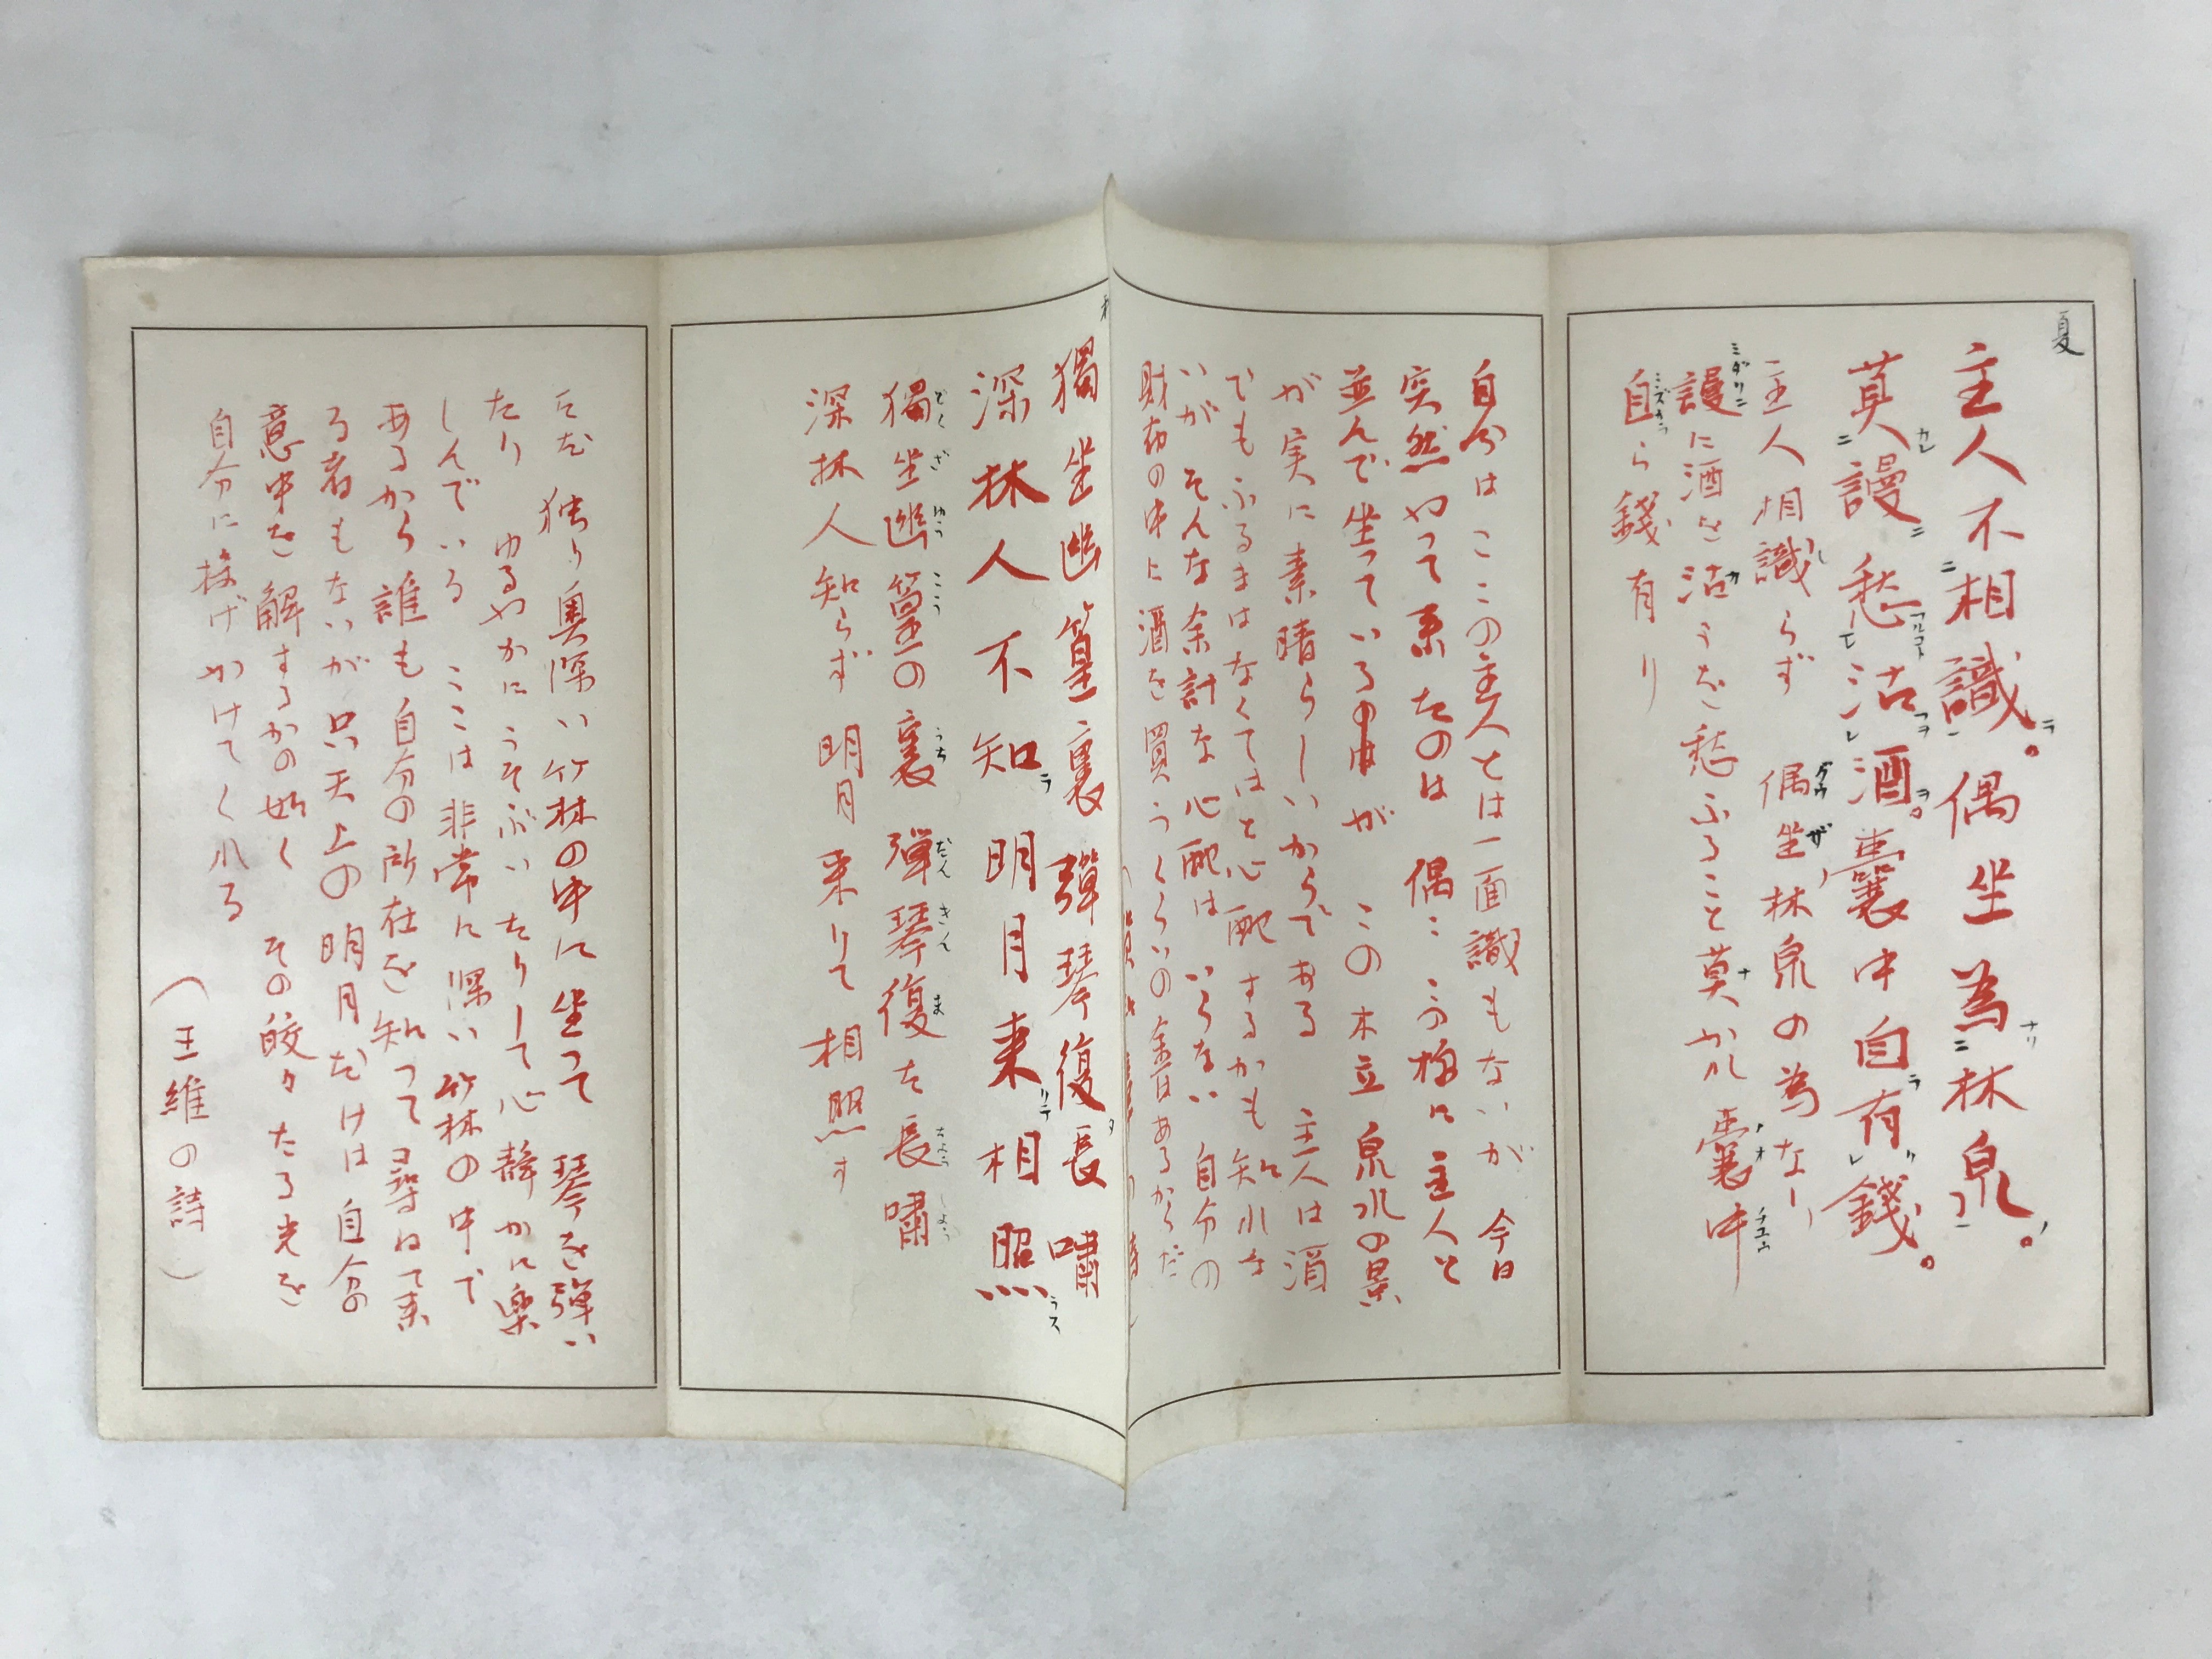 夏
主人不相識。偶坐為林泉。
莫謾愁沽酒。嚢中自有錢。
主人相識らず 偶坐林泉の為なり
謾に酒を沽うを愁ふること莫かれ 嚢中
自ら錢有り
自分はここの主人とは一面識もないが 今日
突然やって来たのは 偶々 この様に主人と
並んで坐っているの中が この木立 泉水の景
が実に素晴らしいからである 主人は酒
でもふるまはなくてはと心配するかも知れな
いが そんな余計な心配は いらない 自分の
財布の中に酒を買うくらいの余百あるからだ
獨坐幽篁裏彈琴復長嘯
深林人不知明月来相照
獨坐幽篁の裏 彈琴復た長嘯
深林人知らず 明月来りて相照す
たゞ 独り奥深い竹林の中に坐って 琴を弾い
たり ゆるやかにうそぶいたりして心静かに楽
しんでいる ここは非常に深い竹林の中で
あるから誰も自分の所在を知って尋ねて来
る者もないが只天上の明月だけは自分の
意中を解するかの如く その皎々たる光を
自分に投げかけてくれる
(王維の詩)